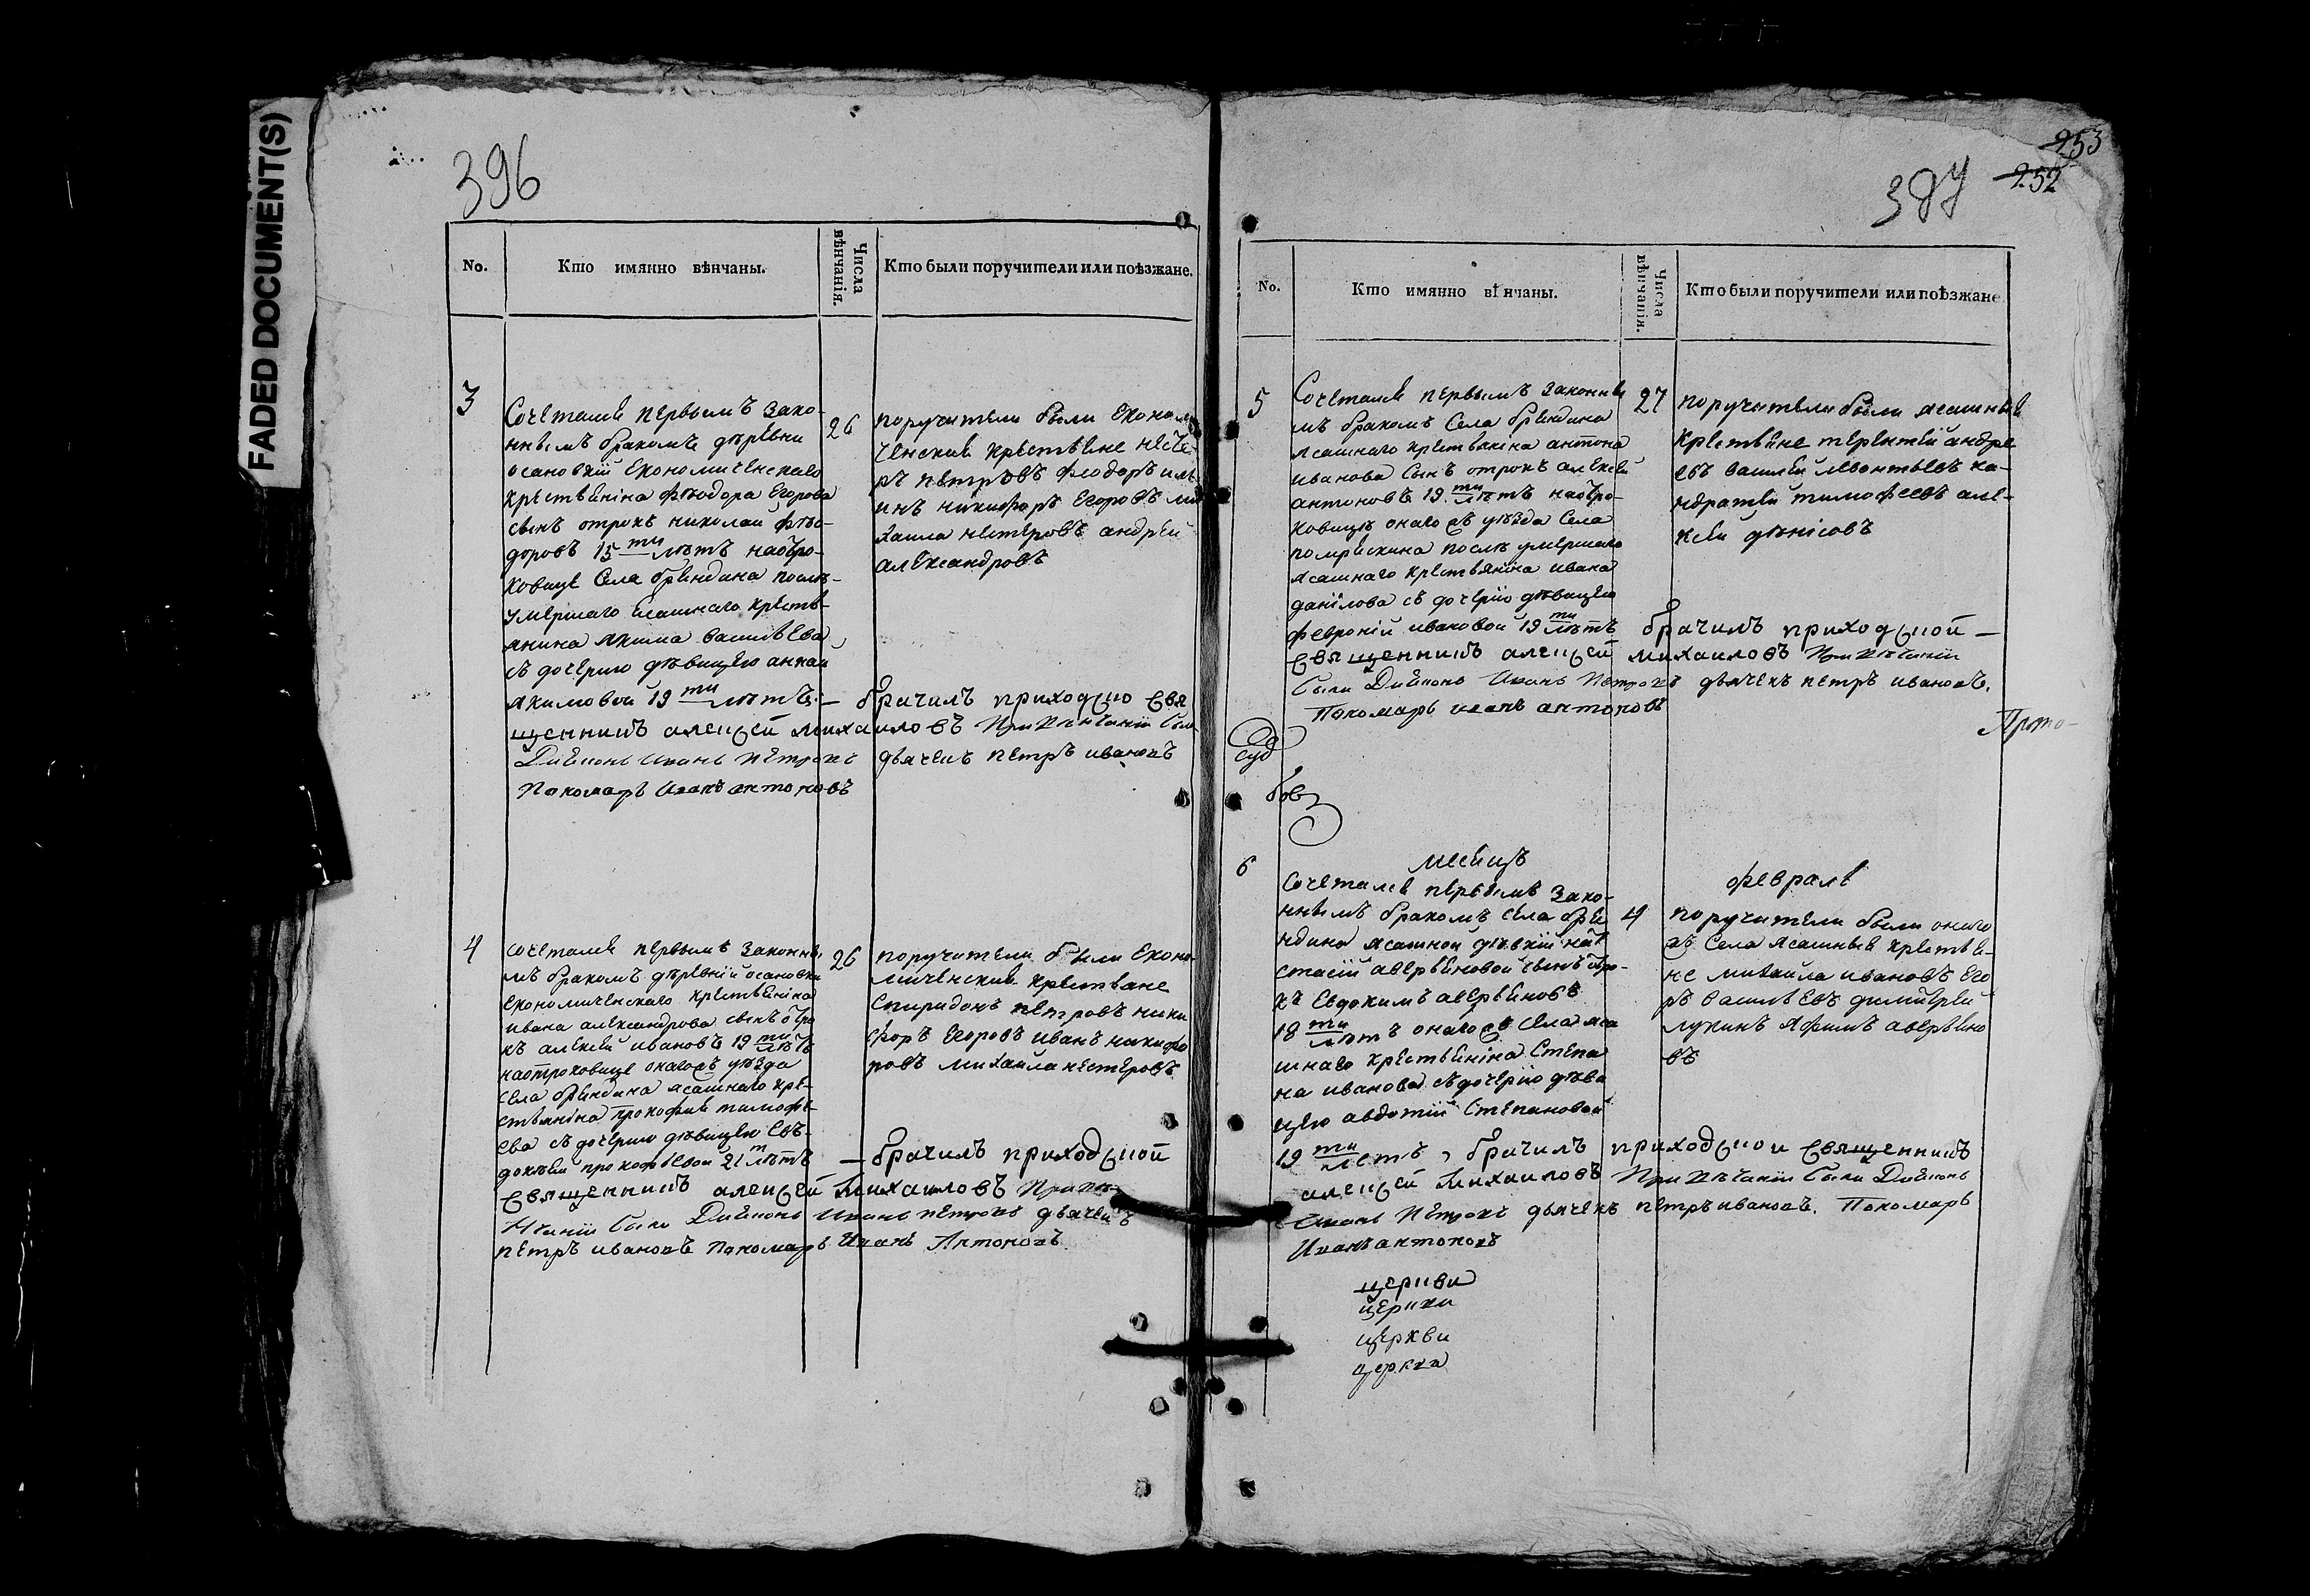 FADED DOCUMENT(S)
396
No.
Кто имянно вѣнчаны.
Числа вѣнчанія.
Кто были поручители или поѣзжане.
3
Сочеталсѧ первымъ зако-
ннымъ бракомъ деревни
осановкій Економическаго
крестьѧніна Фѣодора Егорова
сынъ отрокъ николаи фѣо-
доровъ 15 ти лѣтъ наотро-
ковице Села брѧндина послѣ-
умершаго ясашнаго крестъ-
янина якима васильева
съ дочерию дѣвицею аннаи
якимовои 19 ти лѣтъ
26
поручители были Економ
ческия крестьѧне несте-
ръ петровъ феодоръ иль
инъ никифоръ Егоровъ ми
хаила нестеровъ андреи
александровъ
— брачилъ приходско свя
щенникъ алексей михаиловъ При вѣнчаніи были
Диѧконъ Иванъ Петровъ дьячекъ петръ ивановъ
Пономарь Иванъ антоновъ
4
сочеталсѧ первымъ законны
мъ бракомъ деревній осановки
Економическаго крестьѧніна
ивана александрова сынъ отро
къ алексѧи ивановъ 19 ти лѣтъ
наотроковице онагожъ уѣзда
села брѧндина ясашнаго кре-
стьяніна прокофия тимофе-
ева съ дочерию дѣвицею Евъ-
докѣи прокофьевои 21 т лѣтъ
26
поручители были Еконо
мическия крестьѧне
Спиридонъ петровъ ники
форъ Егоровъ иванъ никифо
ровъ михаила нестеровъ
— брачилъ приходской
священникъ алексей Михаиловъ При вѣ-
нчаніи были Диѧконъ Иванъ петровъ дьячекъ
петръ ивановъ пономарь Иванъ Антоновъ
253
252
387
No.
Кто имянно вѣнчаны.
Числа вѣнчанія.
Кто были поручители или поѣзжане
5
Сочеталсѧ первымъ законны
мъ бракомъ Села брѧндина
ясашнаго крестьяніна антона
иванова сынъ отрокъ алексѧи
антоновъ 19 ти лѣтъ наотро-
ковицѣ онагожъ уѣзда Села
помряскина послѣ умершаго
ясашнаго крестьяніна ивана
данілова съ дочерію дѣвицею
февроніи ивановои 19 ти лѣтъ
27
поручители были ясашныѧ
крестьѧне терентѧи андре
евъ василѧи левонтьевъ ка-
ндратѧи тимофеевъ але-
ксѧи дѣнісовъ
брачилъ приходской —
священникъ алексей михаиловъ При вѣнчаніи
были Диѧконъ Иванъ Петровъ дьячекъ петръ ивановъ.
Пономарь иванъ антоновъ
Прото-
6
месѧцъ
февралѧ
Сочеталсѧ первымъ зако-
ннымъ бракомъ села брѧ
ндина ясашнои дѣвкій нас
стасіи аверьѧновои сынъ отро-
къ Евдокимъ аверьѧновъ
18 ти лѣтъ онагожъ села яса
шнаго крестьѧніна Степа
на иванова съ дочерію дѣви
цею авдотіи Степановои
4
поручители были онаго
жъ Села ясашныѧ крестьѧ-
не михаила ивановъ Его
ръ васильевъ димитреи
лукинъ яфимъ аверьѧно
въ
19 ти летъ, брачилъ приходскои священникъ
алексей Михаиловъ При вѣнчаніи были Диѧконъ
Иванъ Петровъ дьячекъ петръ ивановъ. Пономарь
Иванъ антоновъ
церкви
церкви
церкви
церкви